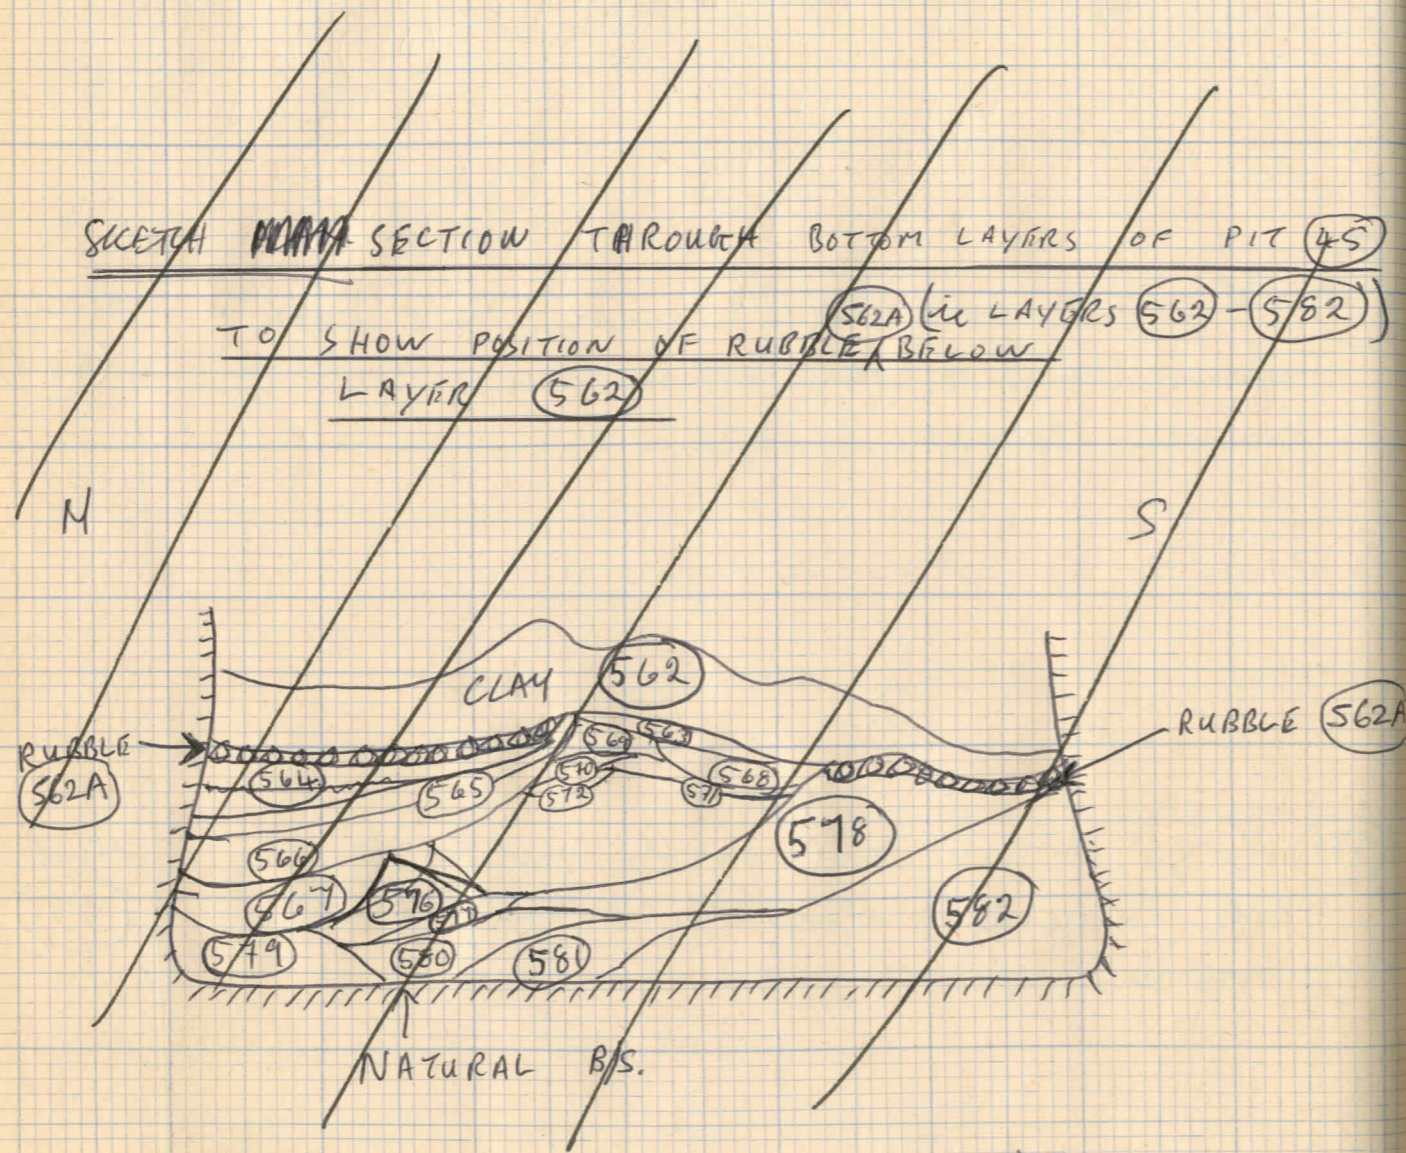 SKETCH SECTION THROUGH BOTTOM LAYERS OF PIT 45
562A (ie LAYERS 562 - 582)
TO SHOW POSITION OF RUBBLE BELOW
LAYER 562
N
S
CLAY 562
RUBBLE 562A
RUBBLE
562A
569 563
564
565
570
572
568
571
578
566
567
576
577
582
579
580
581
NATURAL B/S.